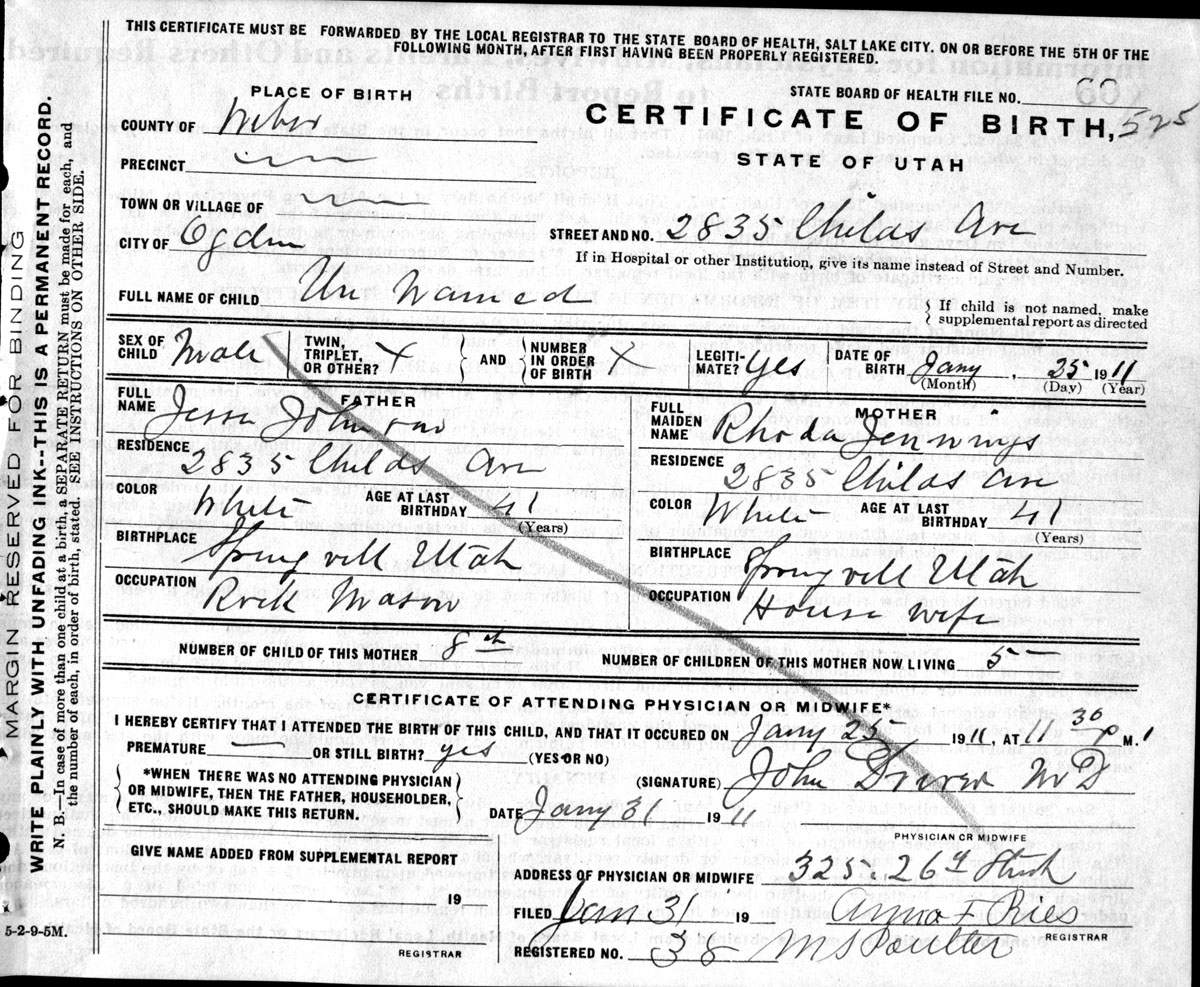 THIS CERTIFICATE MUST BE FORWARDED BY THE LOCAL REGISTRAR TO THE STATE BOARD OF HEALTH, SALT LAKE CITY. ON OR BEFORE THE 5TH OF THE
FOLLOWING MONTH, AFTER FIRST HAVING BEEN PROPERLY REGISTERED.
MARGIN RESERVED FOR BINDING
WRITE PLAINLY WITH UNFADING INK--THIS IS A PERMANENT RECORD.
N. B.—In case of more than one child at a birth, a SEPARATE RETURN must be made for each, and
the number of each, in order of birth, stated. SEE INSTRUCTIONS ON OTHER SIDE.
PLACE OF BIRTH
STATE BOARD OF HEALTH FILE NO.
CERTIFICATE OF BIRTH, 525
STATE OF UTAH
COUNTY OF Weber
PRECINCT
TOWN OR VILLAGE OF
CITY OF Ogden STREET AND NO. 2835 Childs Ave
If in Hospital or other Institution, give its name instead of Street and Number.
FULL NAME OF CHILD Un Named { If child is not named, make
supplemental report as directed
SEX OF CHILD Male TWIN, TRIPLET, OR OTHER? X } AND { NUMBER IN ORDER OF BIRTH X LEGITIMATE? Yes DATE OF BIRTH Jany 25 1911
(Month) (Day) (Year)
FATHER
FULL NAME Jesse Johnson
RESIDENCE 2835 Childs Ave
COLOR White AGE AT LAST BIRTHDAY 41 (Years)
BIRTHPLACE Springvill Utah
OCCUPATION Rock Mason
MOTHER
FULL MAIDEN NAME Rhoda Jennings
RESIDENCE 2835 Childs Ave
COLOR White AGE AT LAST BIRTHDAY 41 (Years)
BIRTHPLACE Springvill Utah
OCCUPATION House wife
NUMBER OF CHILD OF THIS MOTHER 8th NUMBER OF CHILDREN OF THIS MOTHER NOW LIVING 5
CERTIFICATE OF ATTENDING PHYSICIAN OR MIDWIFE*
I HEREBY CERTIFY THAT I ATTENDED THE BIRTH OF THIS CHILD, AND THAT IT OCCURED ON Jany 25 1911, AT 11 30 P M.
PREMATURE — OR STILL BIRTH? yes (YES OR NO)
{ *WHEN THERE WAS NO ATTENDING PHYSICIAN
OR MIDWIFE, THEN THE FATHER, HOUSEHOLDER,
ETC., SHOULD MAKE THIS RETURN. }
(SIGNATURE) John Driver MD
DATE Jany 31 1911
PHYSICIAN OR MIDWIFE
GIVE NAME ADDED FROM SUPPLEMENTAL REPORT
19
REGISTRAR
ADDRESS OF PHYSICIAN OR MIDWIFE 325. 26th Street
FILED Jan 31 19 Anna F Ries
REGISTRAR
REGISTERED NO. 35 M S Poulter
5-2-9-5M.